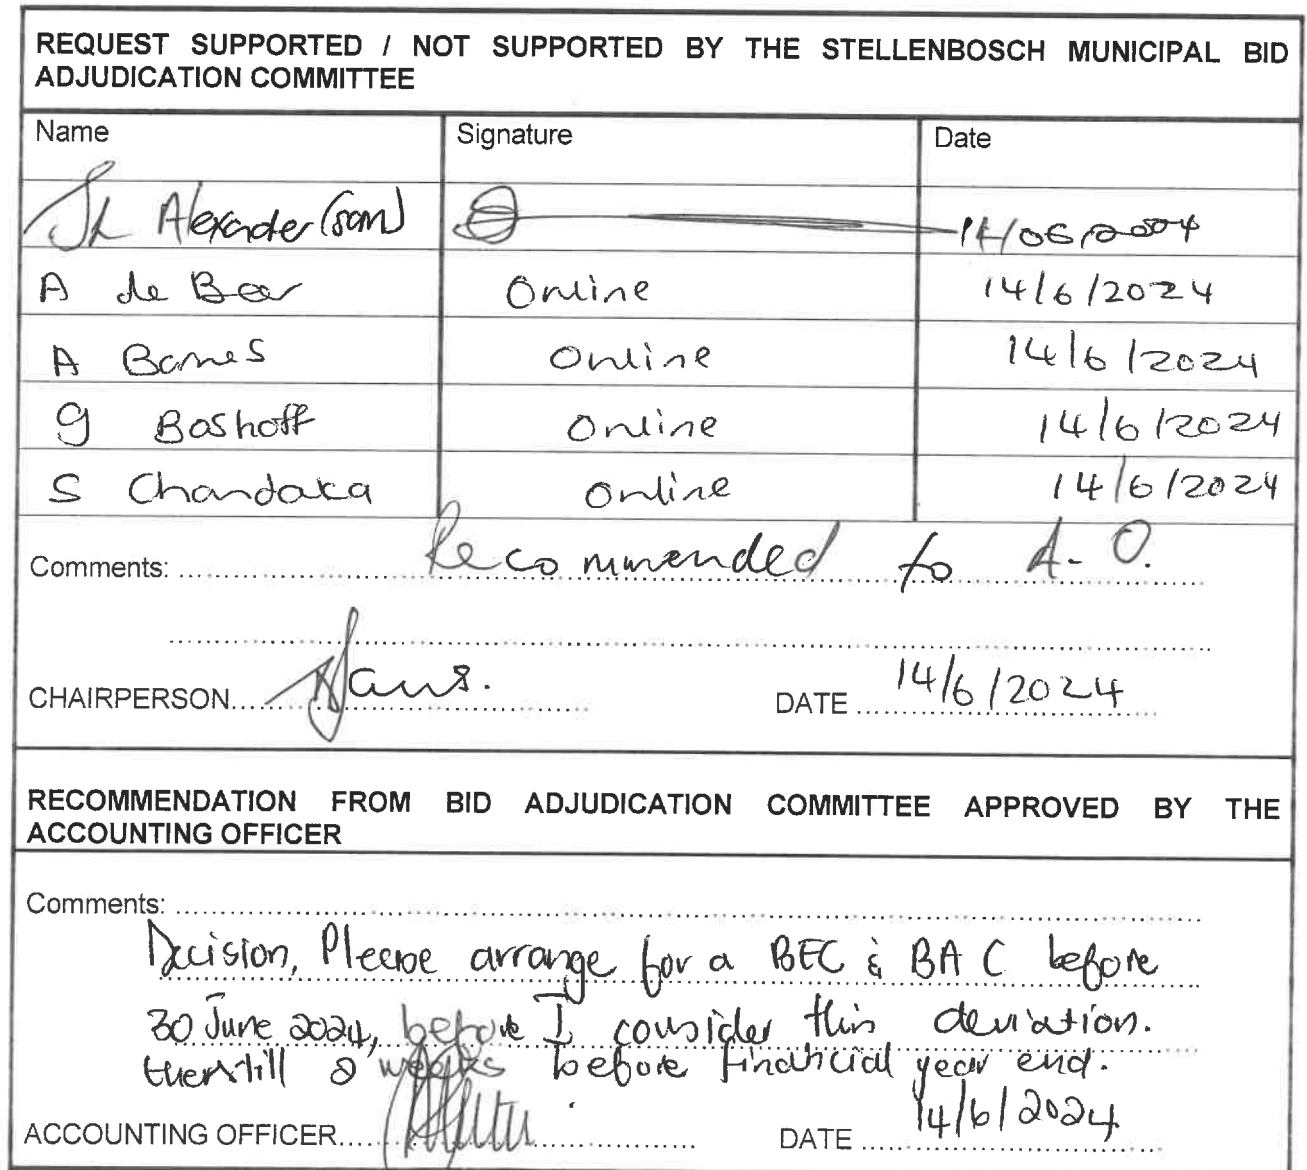 REQUEST SUPPORTED / NOT SUPPORTED BY THE STELLENBOSCH MUNICIPAL BID
ADJUDICATION COMMITTEE
Name Signature Date
Alexander (sam) 14/06/2004
A de Beer Online 14/6/2024
A Barnes Online 14/6/2024
G Boshoff Online 14/6/2024
S Chandaka Online 14/6/2024
Comments: Recommended to A.O.
CHAIRPERSON DATE 14/6/2024
RECOMMENDATION FROM BID ADJUDICATION COMMITTEE APPROVED BY THE
ACCOUNTING OFFICER
Comments:
Decision, Please arrange for a BEC & BAC before
30 June 2024, before I consider this deviation.
still 2 weeks before financial year end.
ACCOUNTING OFFICER DATE 14/6/2024